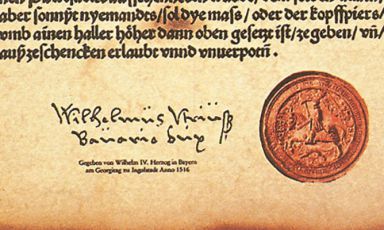 aber sonnst nyemandes/sol dye mass/oder der kopffpiers/
vmb ainen haller höher dann oben gesetzt ist/zegeben/vn̄/
außzeschencken erlaubt vnnd vnuerpotn̄.
Wilhelmus
Bavaria Dux
Gegeben von Wilhelm IV. Herzog in Bayern
am Georgitag zu Ingolstadt Anno 1516